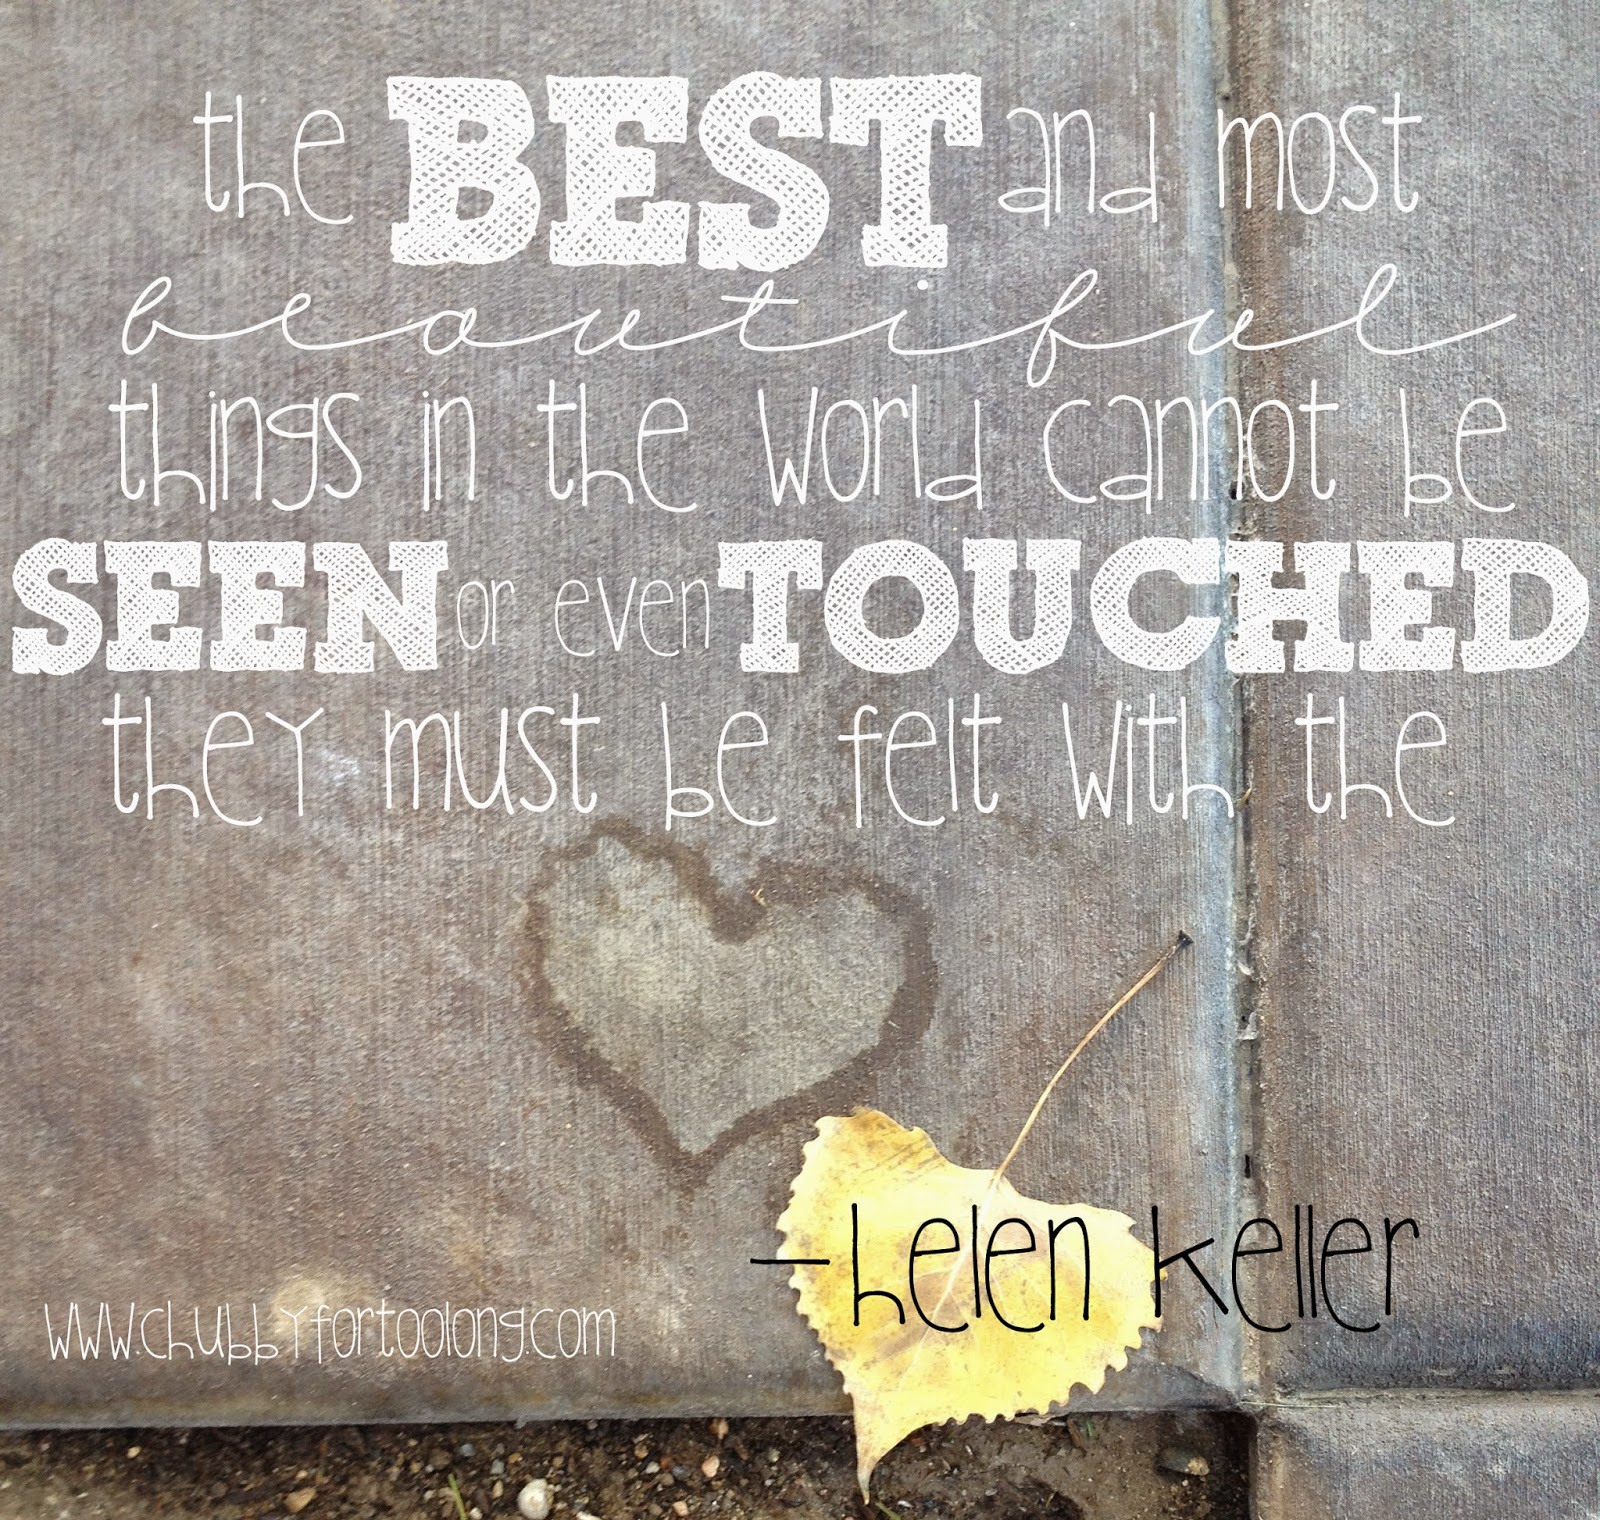 the BEST and most
beautiful
things in the world cannot be
SEEN or even TOUCHED
they must be felt with the
-helen keller
www.chubbyfortoolong.com